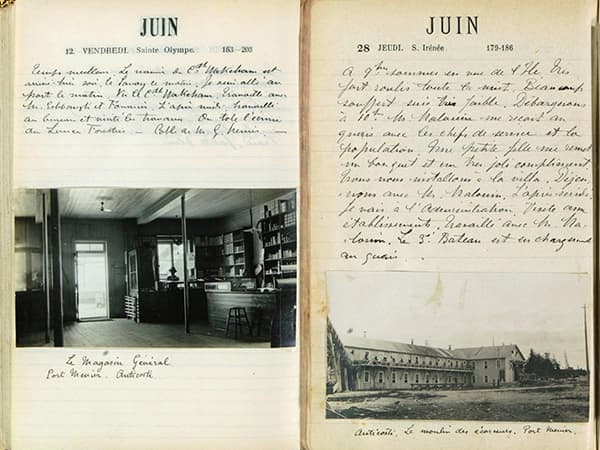 JUIN
12. VENDREDI. Sainte Olympe. 163-203
Temps meilleur. Le navire de Cdt Wakeham est
arrivé hier soir, le Savoy ce matin. Je suis allé au
port le matin. Vu le Cdt Wakeham. Travaillé avec
M. L'après midi, travaillé
au bureau et visité les travaux. On tole l'écurie
Coll. de M. G.
Le Magasin Général
Port Menier. Anticosti
JUIN
28 JEUDI. S. Irénée. 179-186
A 9h sommes en vue de l'Ile. Très
fort roulis toute la nuit. Beaucoup
souffert suis très faible. Débarquons
à 10h M. Malouin me reçoit au
quai avec les chefs de service et la
population. Une petite fille me remet
un bouquet et un très joli compliment.
Nous nous installons à la villa. Déjeu-
nons avec M. Malouin. L'après-midi,
je vais à l'Administration. Visite aux
établissements, travaillé avec M. Ma-
louin. Le 3e Bateau est en chargement
au quai.
Anticosti. Le moulin des écorceurs. Port Menier.